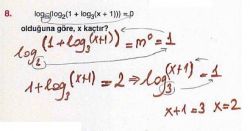 8. log₅(log₂(1 + log₃(x + 1))) = 0
olduğuna göre, x kaçtır?
log₂(1+log₃(x+1)) = m⁰ = 1
1+log₃(x+1) = 2 ⇒ log₃(x+1) = 1
x+1=3 x=2